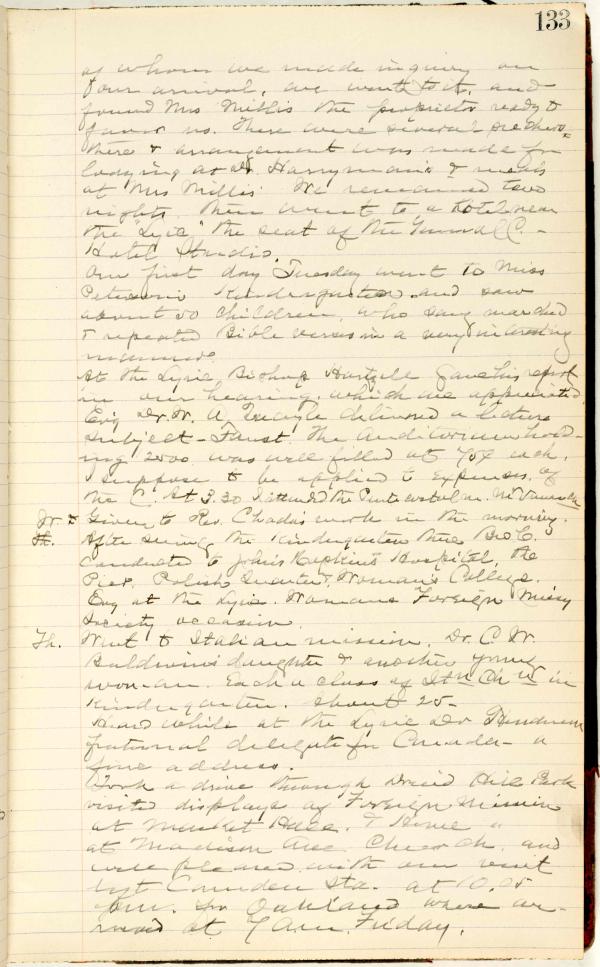 133
of whom we made inquiry on
our arrival, we went to it, and
found Mrs Millis the proprietor ready to
favor us. There were several
there & arrangement was made for
lodging at Harryman's & meals
at Mrs Millis. We remained two
nights. Then went to a Hotel near
the "Lyric" the seat of the General C. -
Hotel
Our first day Tuesday went to Miss
Kindergarten and saw
about 50 children, who sang marched
& repeated Bible verses in a very interesting
manner.
At the Lyric Bishop Hartzell gave his report
in our hearing, which we appreciated.
Evg Dr. W. A. Quayle delivered a lecture
Subject - Faust. The Auditorium hold-
ing 2000 was well filled at each.
Suppose to be applied to expenses of
the C. At 3.30 I attended the Pentecostal m.
Given to Rev. work in the morning.
After seeing the Kindergarten there Bro C.
conducted to John's Hopkin's Hospital, the
Pier, Polish Quarter, Woman's College.
Evg at the Lyric. Womans Foreign Missy
Society occasion.
Th. Went to Italian mission. Dr. C. W.
Baldwin's daughter & another young
woman. Each a class of Itn Chn in
Kindergarten. About 25 -
Heard while at the Lyric Dr Henderson
fraternal delegate fr Canada - a
fine address.
Took a drive through Druid Hill Park
visited displays of Foreign Mission
at Music Hall. & Home "
at Madison Ave. Church. and
well pleased with our visit
left Camden Sta. at 10.05
p.m. for Oakland where ar-
rived at 7 am. Friday.